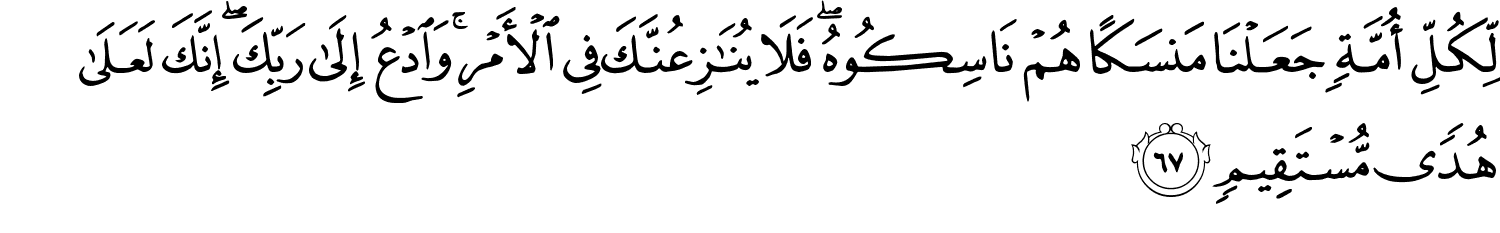 لِّكُلِّ أُمَّةٍ جَعَلْنَا مَنسَكًا هُمْ نَاسِكُوهُ ۖ فَلَا يُنَـٰزِعُنَّكَ فِى ٱلْأَمْرِ ۚ وَٱدْعُ إِلَىٰ رَبِّكَ ۖ إِنَّكَ لَعَلَىٰ
هُدًى مُّسْتَقِيمٍ ٦٧